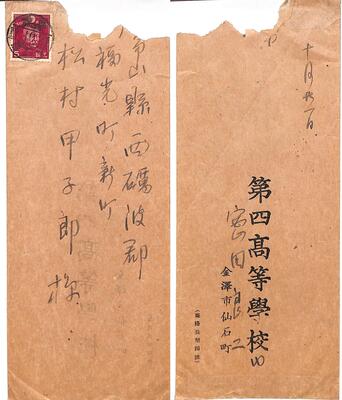 富山縣西礪波郡
福光町新町
松村甲子郎様
5
十月廿一日
第四高等學校内
金澤市仙石町